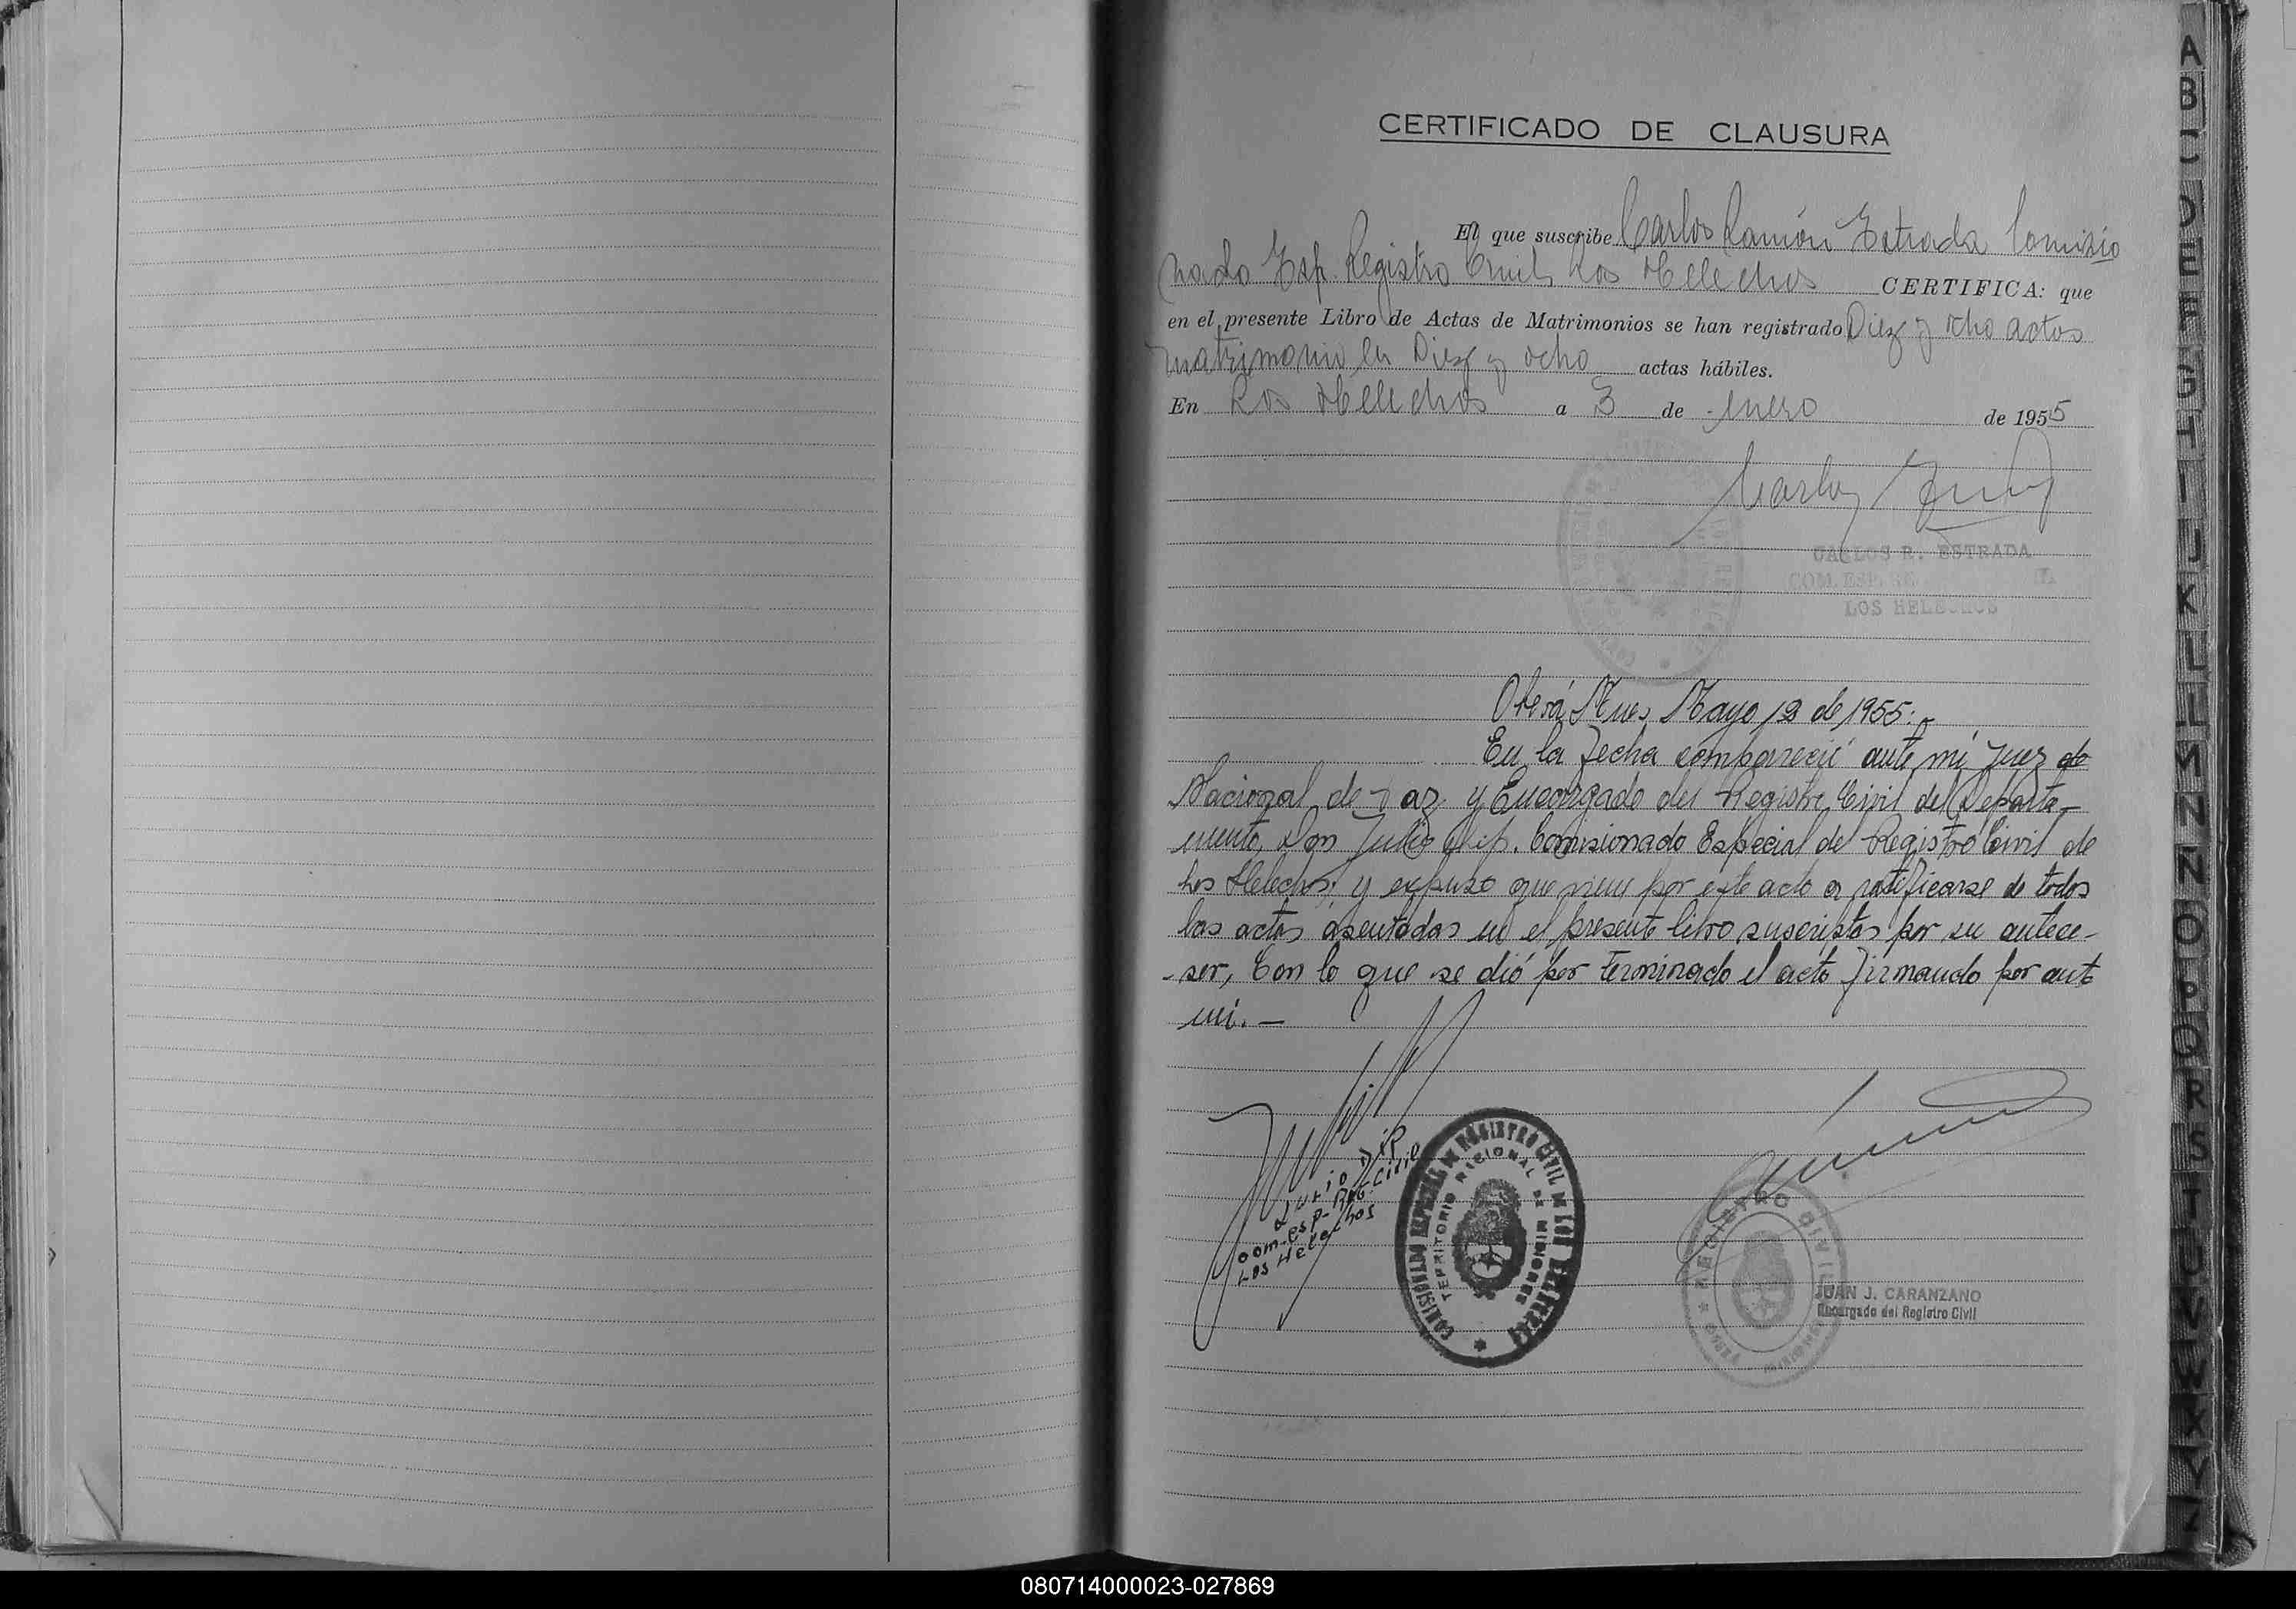 CERTIFICADO DE CLAUSURA
El que suscribe Carlos Ramón Estrada Comisio
nado Esp. Registro Civil Los Helechos CERTIFICA: que
en el presente Libro de Actas de Matrimonios se han registrado Diez y ocho actos
matrimonio en Diez y ocho actas hábiles.
En Los Helechos a 3 de enero de 1955
CARLOS R. ESTRADA
COM. ESP.
LOS HELECHOS
Oberá, Mnes, Mayo 12 de 1955:-
En la fecha compareció ante mi, Juez de
Nacional de Paz y Encargado del Registro Civil del Departa-
mento, Don Julio Dip. Comisionado Especial del Registro Civil de
Los Helechos; y expuso que viene por este acto a ratificarse de todos
las actas asentadas en el presente libro suscriptas por su antece-
-sor, Con lo que se dió por terminado el acto firmando por ante
mi.-
Julio Dip
Com-Esp-Reg-Civil
Los Helechos
COMISIONADO ESPECIAL DE REGISTRO CIVIL DE LOS HELECHOS
TERRITORIO NACIONAL DE MISIONES
REGISTRO CIVIL
JUAN J. CARANZANO
Encargado del Registro Civil
A
B
C
D
E
F
G
H
I
J
K
L
M
N
Ñ
O
P
Q
R
S
T
U
V
W
X
Y
Z
080714000023-027869